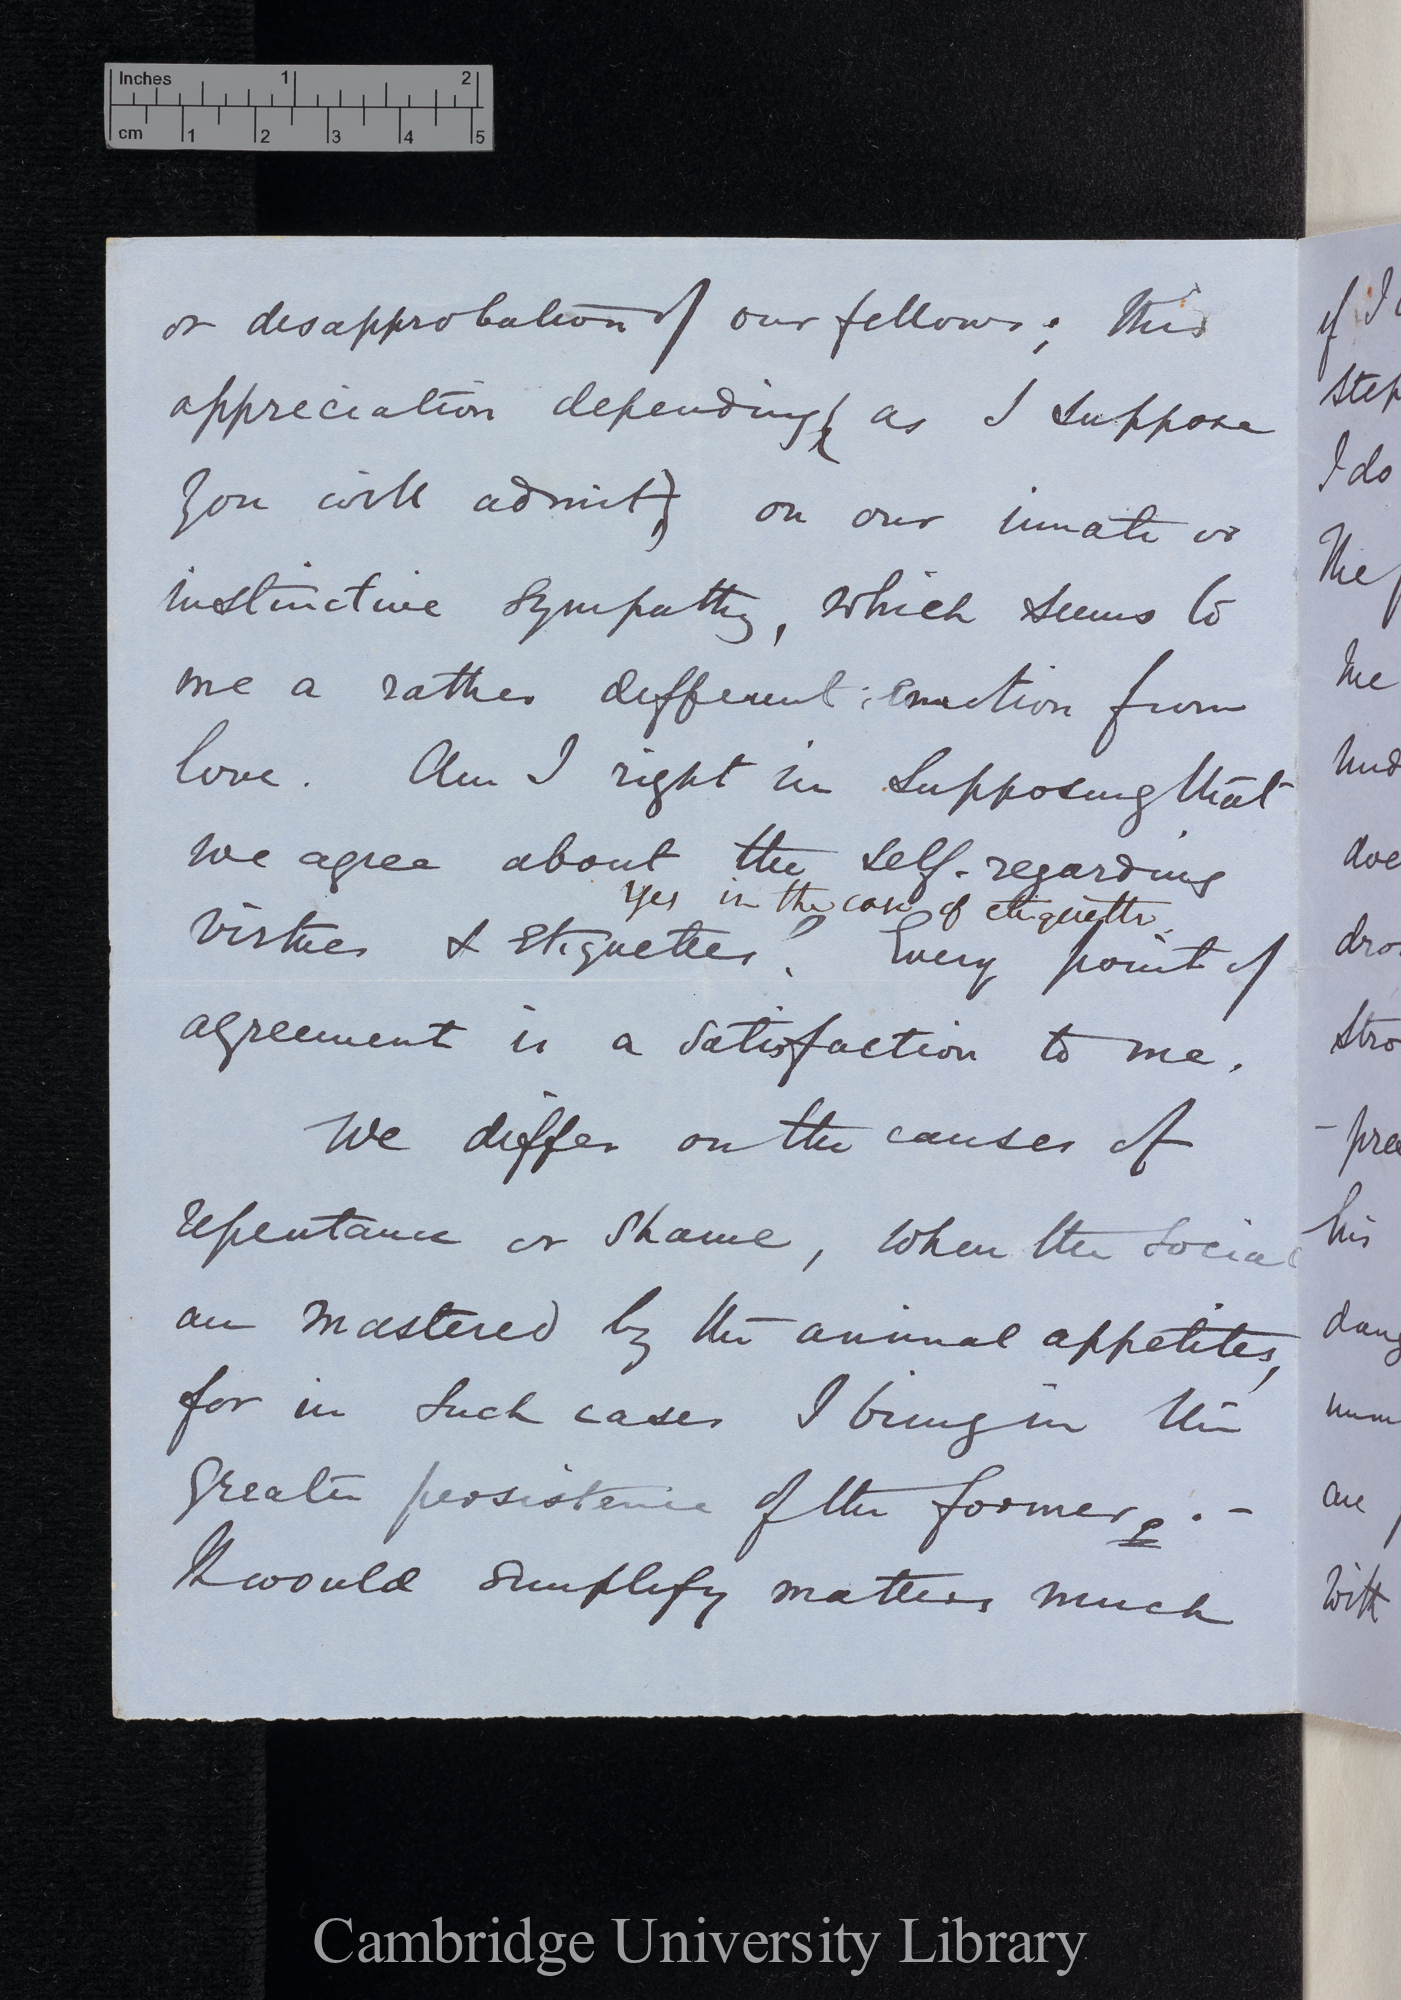 Inches 1 2
cm 1 2 3 4 5
or disapprobation of our fellows; this
appreciation depending (as I suppose
you will admit) on our innate or
instinctive sympathy, which seems to
me a rather different emotion from
love. Am I right in supposing that
we agree about the self-regarding
Yes in the case of etiquette.
virtues & etiquettes? Every point of
agreement is a satisfaction to me.
We differ on the causes of
repentance or shame, when the social
are mastered by the animal appetites,
for in such cases I bring in the
greater persistence of the former. –
It would simplify matters much
if I
step
I do
The
me
und
doe
dro
stro
- pre
his
dang
num
are
with
Cambridge University Library